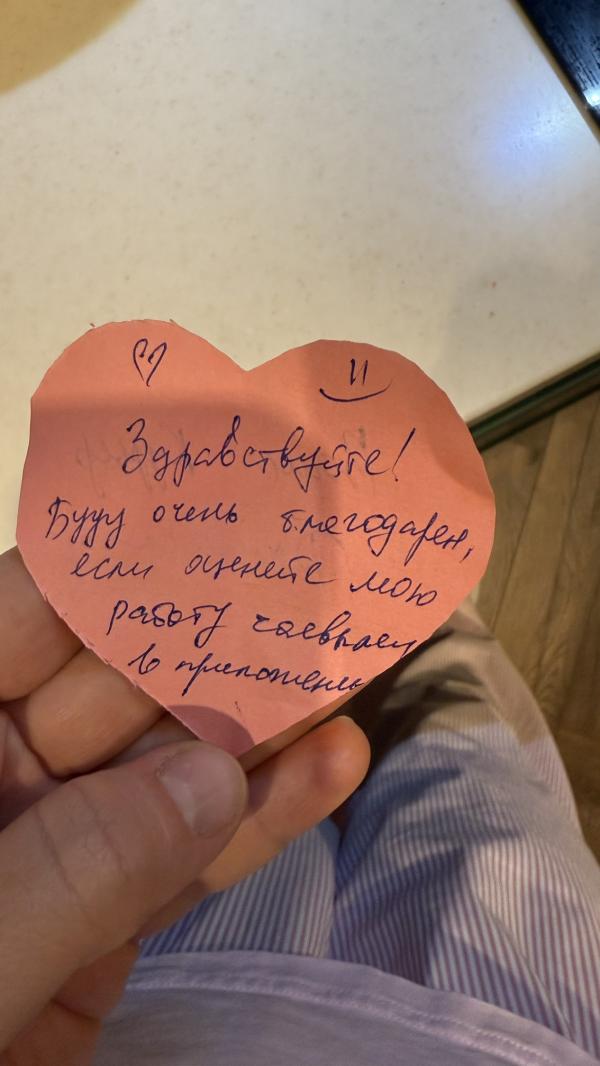 Здравствуйте!
Буду очень благодарен,
если оцените мою
работу чаевыми
в приложении